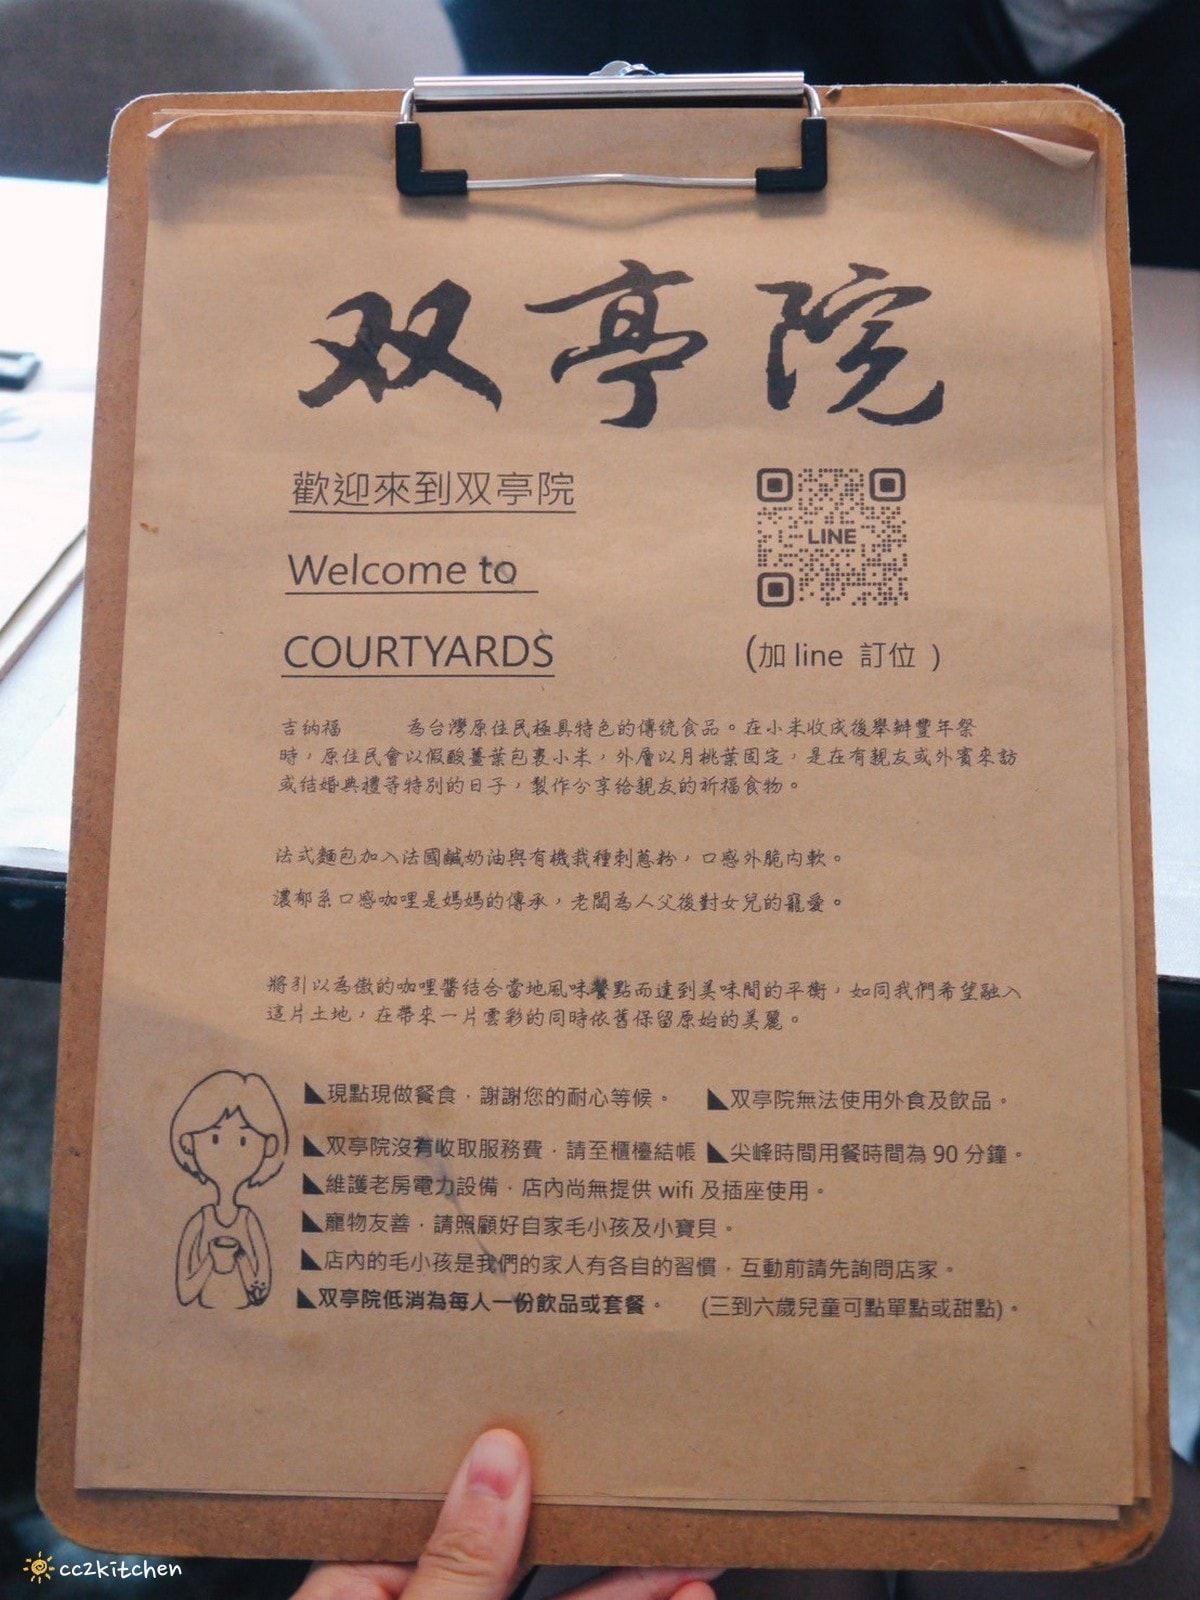 双亭院
歡迎來到双亭院
Welcome to
COURTYARDS
LINE
(加 line 訂位 )
吉納福 為台灣原住民極具特色的傳統食品。在小米收成後舉辦豐年祭
時，原住民會以假酸薑葉包裹小米，外層以月桃葉固定，是在有親友或外賓來訪
或結婚典禮等特別的日子，製作分享給親友的祈福食物。
法式麵包加入法國鹹奶油與有機栽種刺蔥粉，口感外脆內軟。
濃郁系口感咖哩是媽媽的傳承，老闆為人父後對女兒的寵愛。
將引以為傲的咖哩醬結合當地風味餐點而達到美味間的平衡，如同我們希望融入
這片土地，在帶來一片雲彩的同時依舊保留原始的美麗。
◣現點現做餐食，謝謝您的耐心等候。 ◣双亭院無法使用外食及飲品。
◣双亭院沒有收取服務費，請至櫃檯結帳 ◣尖峰時間用餐時間為 90 分鐘。
◣維護老房電力設備，店內尚無提供 wifi 及插座使用。
◣寵物友善，請照顧好自家毛小孩及小寶貝。
◣店內的毛小孩是我們的家人有各自的習慣，互動前請先詢問店家。
◣双亭院低消為每人一份飲品或套餐。 (三到六歲兒童可點單點或甜點)。
cc2kitchen